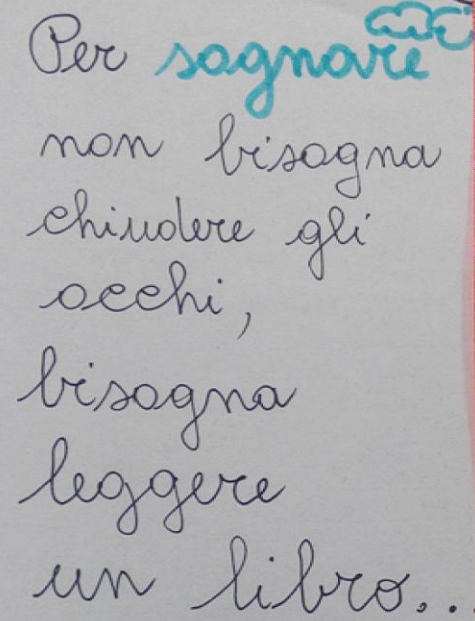 Per sognare
non bisogna
chiudere gli
occhi,
bisogna
leggere
un libro...